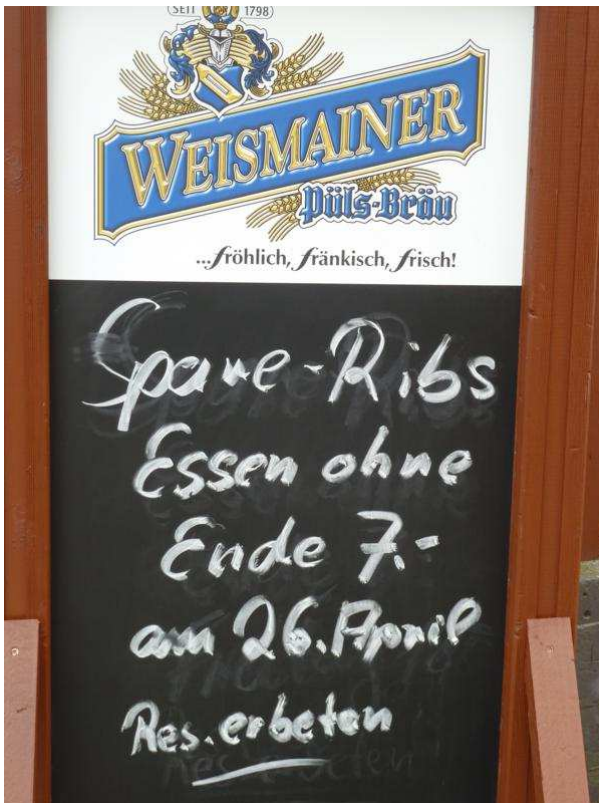 (SEIT 1798)
WEISMAINER
Püls-Bräu
...fröhlich, fränkisch, frisch!
Spare-Ribs
Essen ohne
Ende 7.-
am 26. April
Res. erbeten